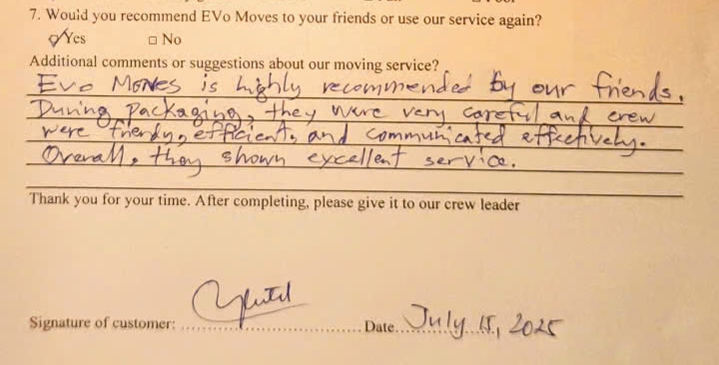 7. Would you recommend EVo Moves to your friends or use our service again?
☑ Yes □ No
Additional comments or suggestions about our moving service?
Evo Moves is highly recommended by our friends.
During packaging, they were very careful and crew
were friendy, efficient, and communicated effectively.
Overall, they shown excellent service.
Thank you for your time. After completing, please give it to our crew leader
Signature of customer: ........................................ Date... July 15, 2025